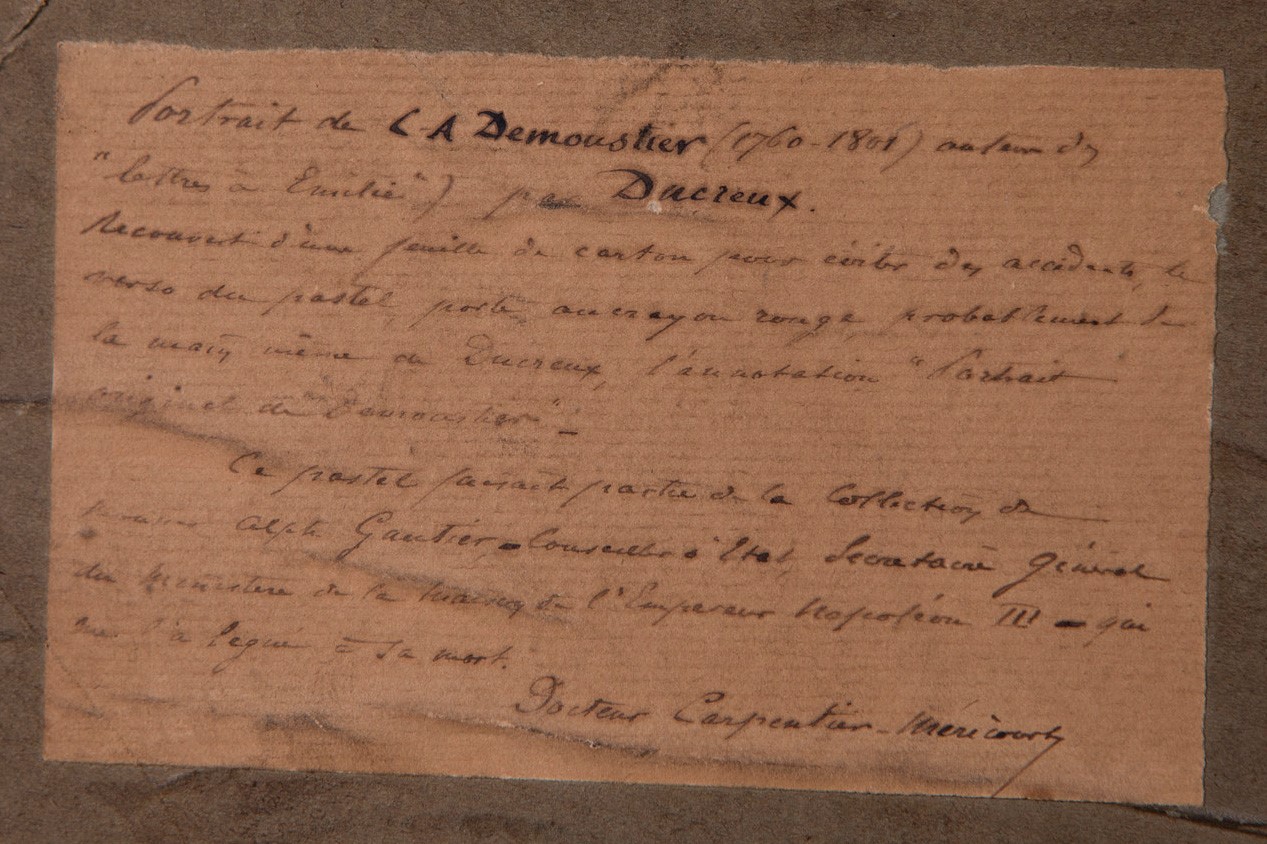 Portrait de C A Demoustier (1760-1801) auteur des
"lettres à Emilie") par Ducreux.
Recouvert d'une feuille de carton pour éviter des accidents, le
verso du pastel, porte au crayon rouge, probablement de
la main même de Ducreux, l'annotation "Portrait
original de Demoustier".
Ce pastel faisait partie de la Collection de
Alph Gautier, Conseiller d'Etat, Secretaire général
du Ministère de la Maison de l'Empereur Napoléon III - qui
me l'a légué à sa mort.
Docteur Carpentier-Méricourt